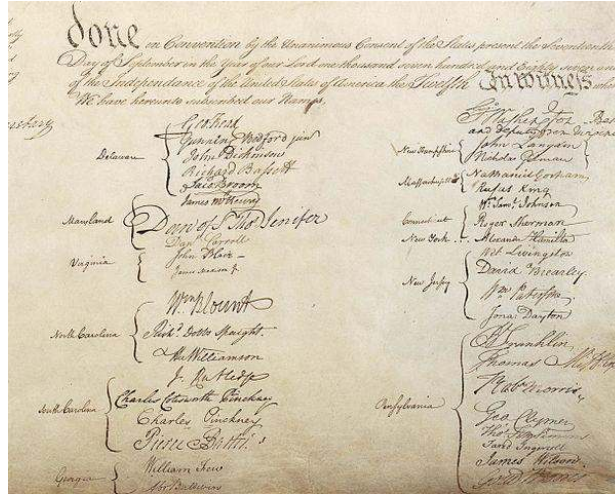 done in Convention by the Unanimous Consent of the States present the Seventeenth
Day of September in the Year of our Lord one thousand seven hundred and Eighty seven and
of the Independance of the United States of America the Twelfth In Witness
We have hereunto subscribed our Names,
Delaware
Geo: Read
Gunning Bedford jun
John Dickinson
Richard Bassett
Jaco: Broom
Maryland
James McHenry
Dan of St Thos Jenifer
Danl Carroll
Virginia
John Blair
James Madison Jr
North Carolina
Wm Blount
Richd Dobbs Spaight.
Hu Williamson
South Carolina
J. Rutledge
Charles Cotesworth Pinckney
Charles Pinckney
Pierce Butler.
Georgia
William Few
Abr Baldwin
Go: Washington
and deputy from
New Hampshire
John Langdon
Nicholas Gilman
Massachusetts
Nathaniel Gorham
Rufus King
Connecticut
Wm Saml Johnson
Roger Sherman
New York
Alexander Hamilton
New Jersey
Wil: Livingston
David Brearley.
Wm Paterson.
Jona: Dayton
Pensylvania
B Franklin
Thomas Mifflin
Robt Morris
Geo. Clymer
Thos FitzSimons
Jared Ingersoll
James Wilson
Gouv Morris